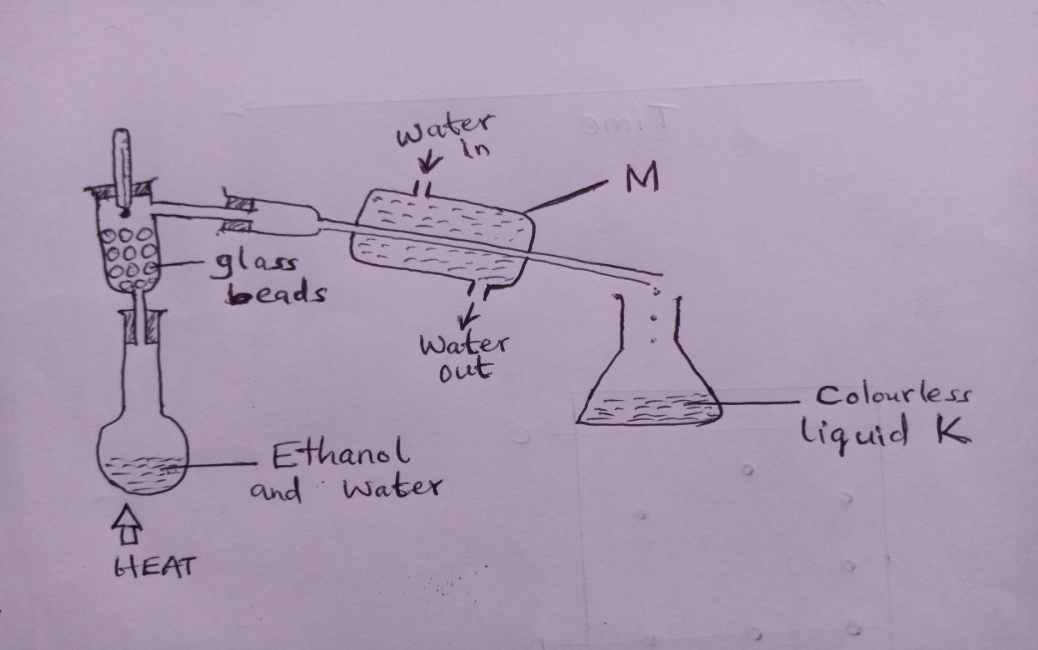 Water
in
M
glass
beads
Water
out
Colourless
liquid K
Ethanol
and water
HEAT
Time